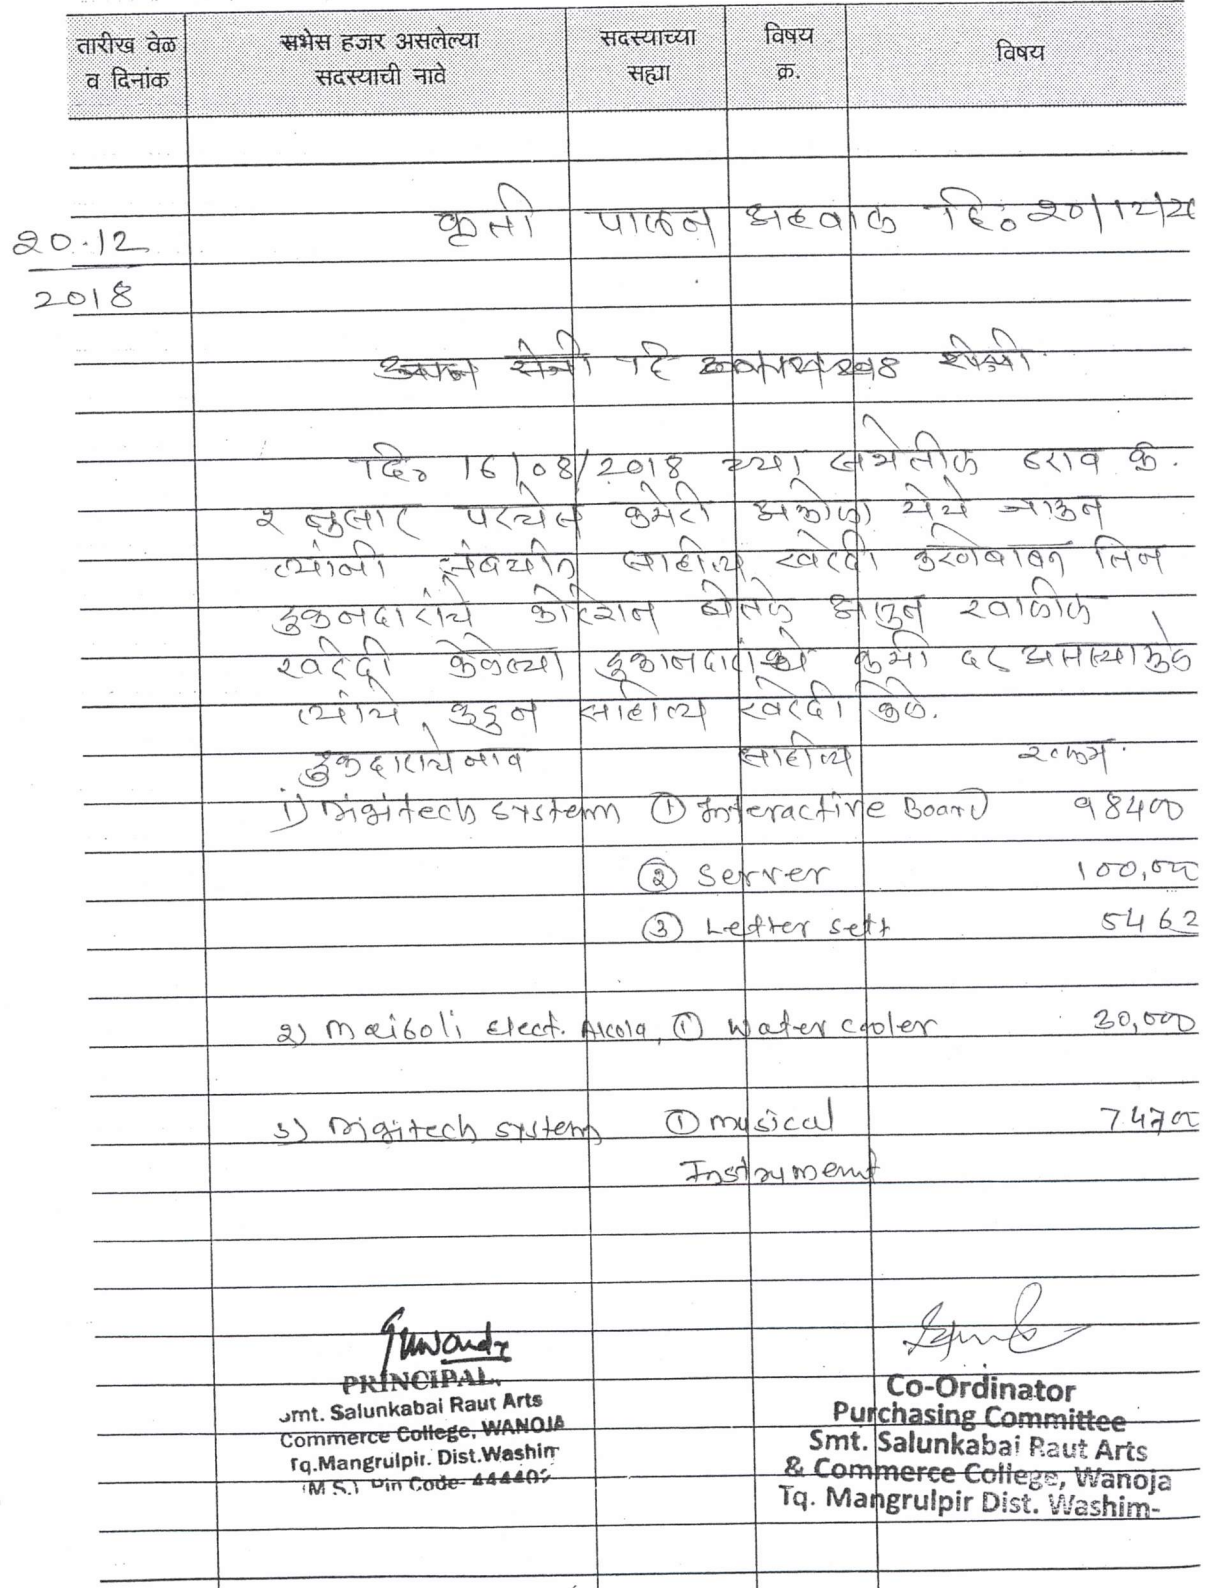 तारीख वेळ व दिनांक
सभेस हजर असलेल्या सदस्याची नावे
सदस्याच्या सह्या
विषय क्र.
विषय
कृती पालन अहवाल दि. २०/12/१८
२०.12
2018
दि. 16/08/2018 च्या सभेतील ठराव क्र.
२ नुसार परचेस कमेटी अकोला येथे जाऊन
त्यांनी संबधीत साहीत्य खरेदी करणेबाबत तिन
दुकनदारांचे कोटेशन घेतले असुन खालील
खरेदी केलेल्या दुकानदारांचे कमी दर असल्यामुळे
त्यांचे कडुन साहीत्य खरेदी केले.
दुकदाराचे नाव साहीत्य रक्कम.
1) Digitech system ① Interactive Board 98400
② Server 100,00
③ Letter sett 5462
२) maiboli Elect. Akola, ① Water cooler 30,000
3) Digitech system ① musical 74700
Instrument
PRINCIPAL
Smt. Salunkabai Raut Arts
Commerce College, WANOJA
Tq.Mangrulpir. Dist.Washim
(M.S.) Pin Code- 444402
Co-Ordinator
Purchasing Committee
Smt. Salunkabai Raut Arts
& Commerce College, Wanoja
Tq. Mangrulpir Dist. Washim-